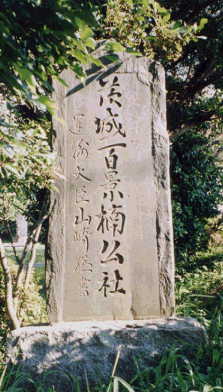 茨城百景楠公社
運輸大臣山崎猛書